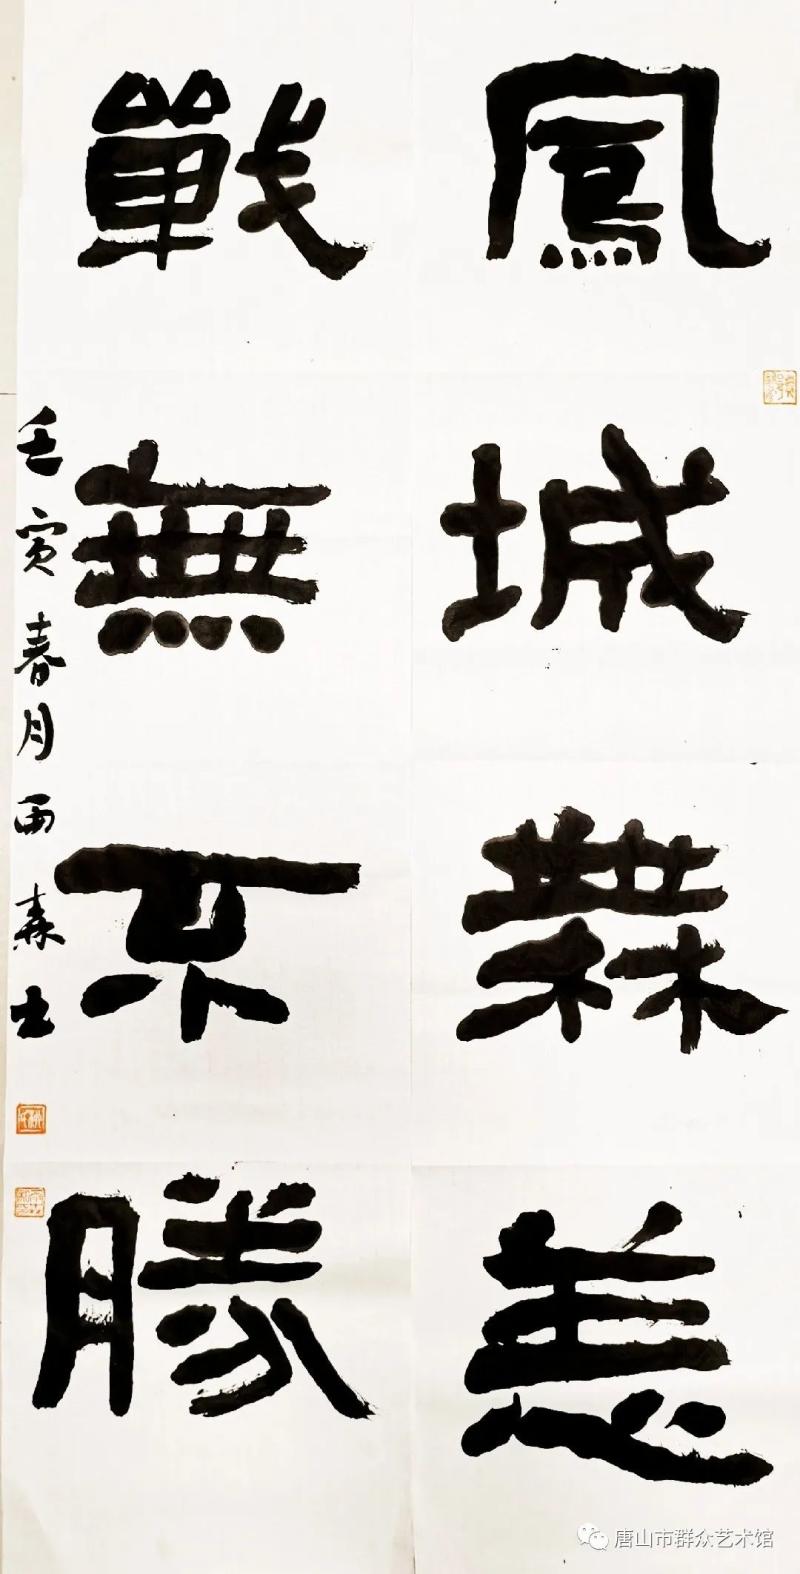 鳳城橆恙
戰無不勝
壬寅春月雨森书
唐山市群众艺术馆